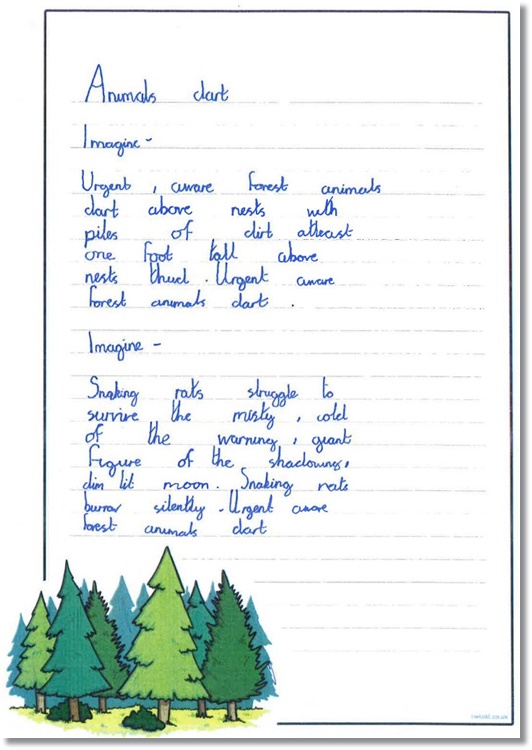 Animals dart
Imagine -
Urgent , aware forest animals
dart above nests with
piles of dirt atleast
one foot tall above
nests thud . Urgent aware
forest animals dart .
Imagine -
Snaking rats struggle to
survive the misty , cold
of the warning , giant
figure of the shadowing,
dim lit moon . Snaking rats
burrow silently . Urgent aware
forest animals dart